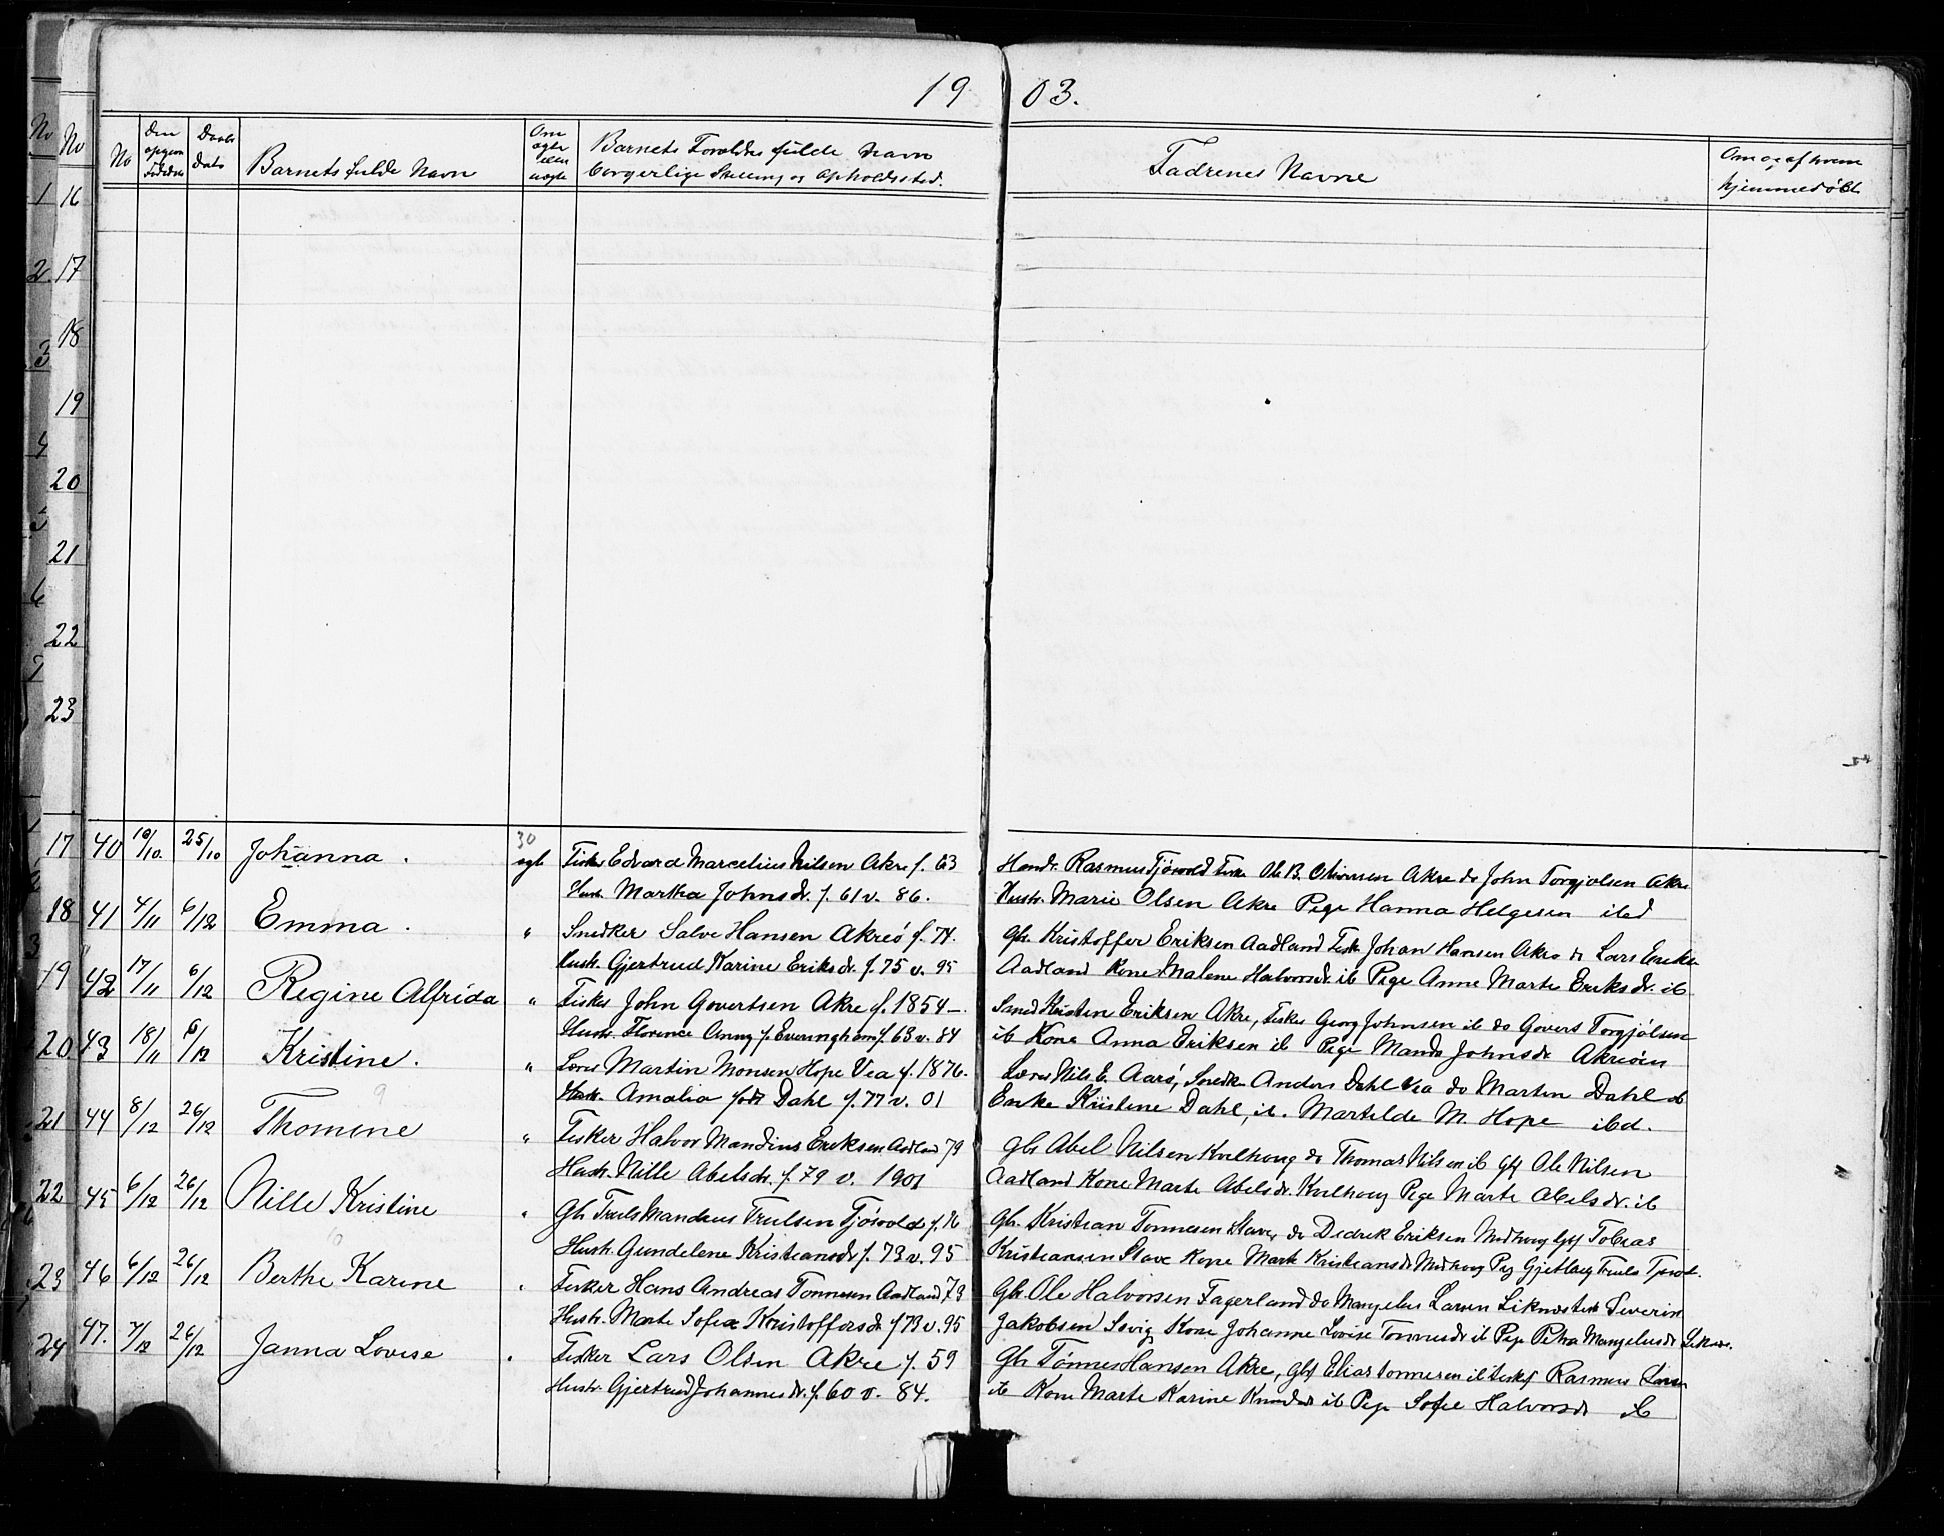 1903.
No
Den opgivn Fødselsd
Daabs dato
Barnets fulde Navn
Om ægte eller uægte
Barnets Forældres fulde Navn
borgerlige Stilling og Opholdssted.
Fadrenes Navne
Om og af hvem
hjemmedøbt
No No
1 16
2 17
3 18
4 19
20
5 21
6 22
7 23
30
17 40 10/10. 25/10 Johanna. ægte Fisker Edvard Marcelius Nilsen Akre f. 63 Handr. Rasmus Tjösvold Fisker Ole B. Akre do John Torgjolsen Akre
Hustr. Martha Johnsdr. f. 61 v. 86. Hustr. Marie Olsen Akre Pige Hanna Helgesen ibd
18 41 4/11 6/12 Emma. " Snedker Salve Hansen Akreö f. 74. Gbr. Kristoffer Eriksen Aadland Fisk Johan Hansen Akre do Lars Eriks
Hustr. Gjertrud Karine Eriksdr. f. 75 v. 95 Aadland Kone Malene Halvorsdr. ib Pige Anne Marte Eriksdr. ib
19 42 17/11 6/12 Regine Alfrida " Fisker John Govertsen Akre f. 1854 Snedk Kristen Eriksen Akre, Fisker Georg Johnsen ib do Govert Torgjölsen
Hustr. Florence Anny f. Everingham f. 63 v. 84 ib Kone Anna Eriksen ib Pige Manda Johnsdr Akreöen
20 43 18/11 6/12 Kristine. " Lærer Martin Monsen Hope Vea f. 1876. Lærer Nils E. Aarö, Snedk Anders Dahl Vea do Martin Dahl ib
Hustr. Amalia født Dahl f. 77 v. 01 Enke Kristine Dahl, ib. Martilde M. Hope ibd.
21 44 8/12 26/12 Thomine 9 " Fisker Halvor Mandius Eriksen Aadland 79 Gbr Abel Nilsen Kvilhoug do Thomas Nilsen ib Gbf Ole Nilsen
Hustr. Nille Abelsdr. f. 79 v. 1901 Aadland Kone Marte Abelsdr. Kvilhoug Pige Marte Abelsdr. ib
22 45 6/12 26/12 Nille Kristine " Gbr Truls Mandeus Trulsen Tjösvold f. 76 Gbr. Kristian Tonnesen Stava do Didrik Eriksen Medhoug Gbf Tobias
Hustr. Gundelene Kristiansdr f. 73 v. 95 Kristiansen Stave Kone Marte Kristiansdr Medhoug Pig Truls
23 46 6/12 26/12 Berthe Karine " Fisker Hans Andreas Tonnesen Aadland 73 Gbr. Ole Halvorsen Fagerland do Mangelus Larsen Liknes Fisk Severin
Hustr. Marte Sofie Kristoffersdr f 73 v. 95 Jakobsen Sevig Kone Johanne Lovise Tonnesdr ib Pige Petra Mangelusdr Liknes.
24 47. 7/12 26/12 Janna Lovise " Fisker Lars Olsen Akre f. 59 Gbr Tönnes Hansen Akre, Gbf Elias Tonnesen ib Fiskf Rasmus Larsen
Hustr. Gjertrud Johannesdr. f. 60 v. 84. ib Kone Marte Karine Knudsdr ib Pige Sofie Halvorsdr ib